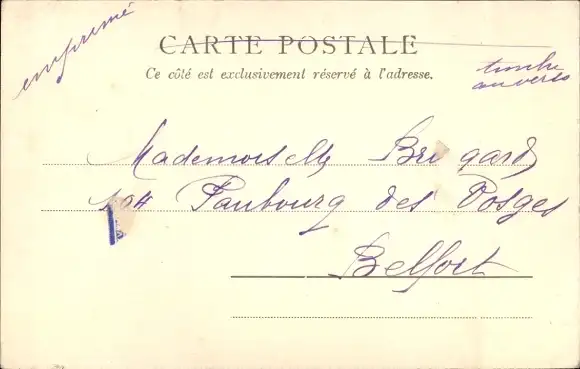 imprimé
CARTE POSTALE
Ce côté est exclusivement réservé à l'adresse.
timbre
au verso
Mademoiselle
104 Faubourg des Vosges
Belfort